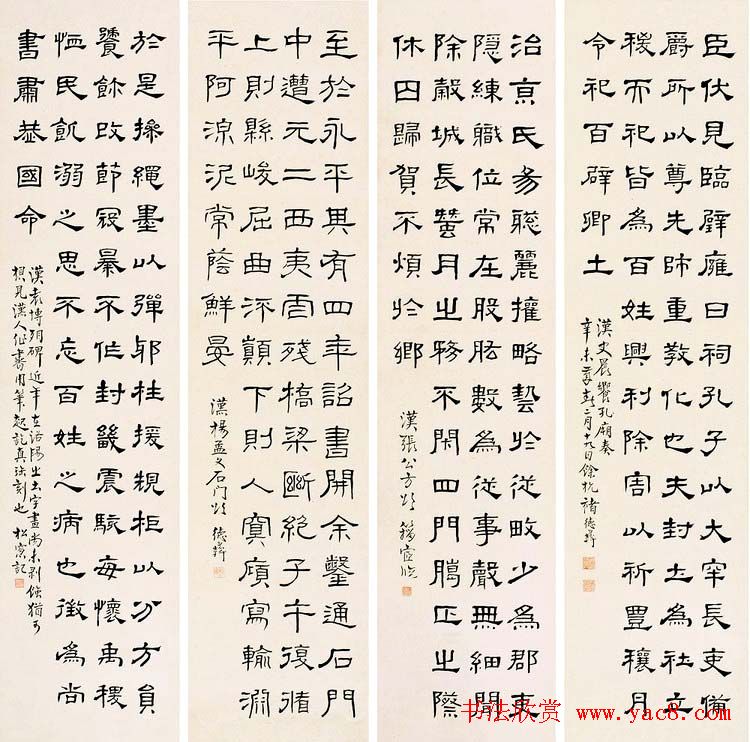 臣伏見臨辟廱日祠孔子以大宰長吏備
爵所以尊先師重教化也夫封土為社立
稷而祀皆為百姓興利除害以祈豐穰月
令祀百辟卿土
漢史晨饗孔廟奏
辛未孟春二月十九日餘杭褚德彝
治京氏易聰麗權略藝於從畋少為郡吏
隱練職位常在股肱數為從事聲無細聞
除穀城長蠶月之務不閉四門臘正之際
休囚歸賀不煩於鄉
漢張公方頌 臨
至於永平其有四年詔書開余鑿通石門
中遭元二西夷虐殘橋梁斷絕子午復循
上則縣峻屈曲流顛下則人寞廎寫輸淵
平阿湶泥常蔭鮮晏
漢楊孟文石門頌 德彝
於是操繩墨以彈邪枉援規柜以分方員
饕飻改節寇暴不作封畿震駭每懷禹稷
恤民飢溺之思不忘百姓之病也徵為尚
書肅恭國命
漢袁博殘碑近年在洛陽出土字畫尚未剝蝕猶可
想見漢人作書用筆起訖真法刻也 松窗記
书法欣赏 www.yac8.com